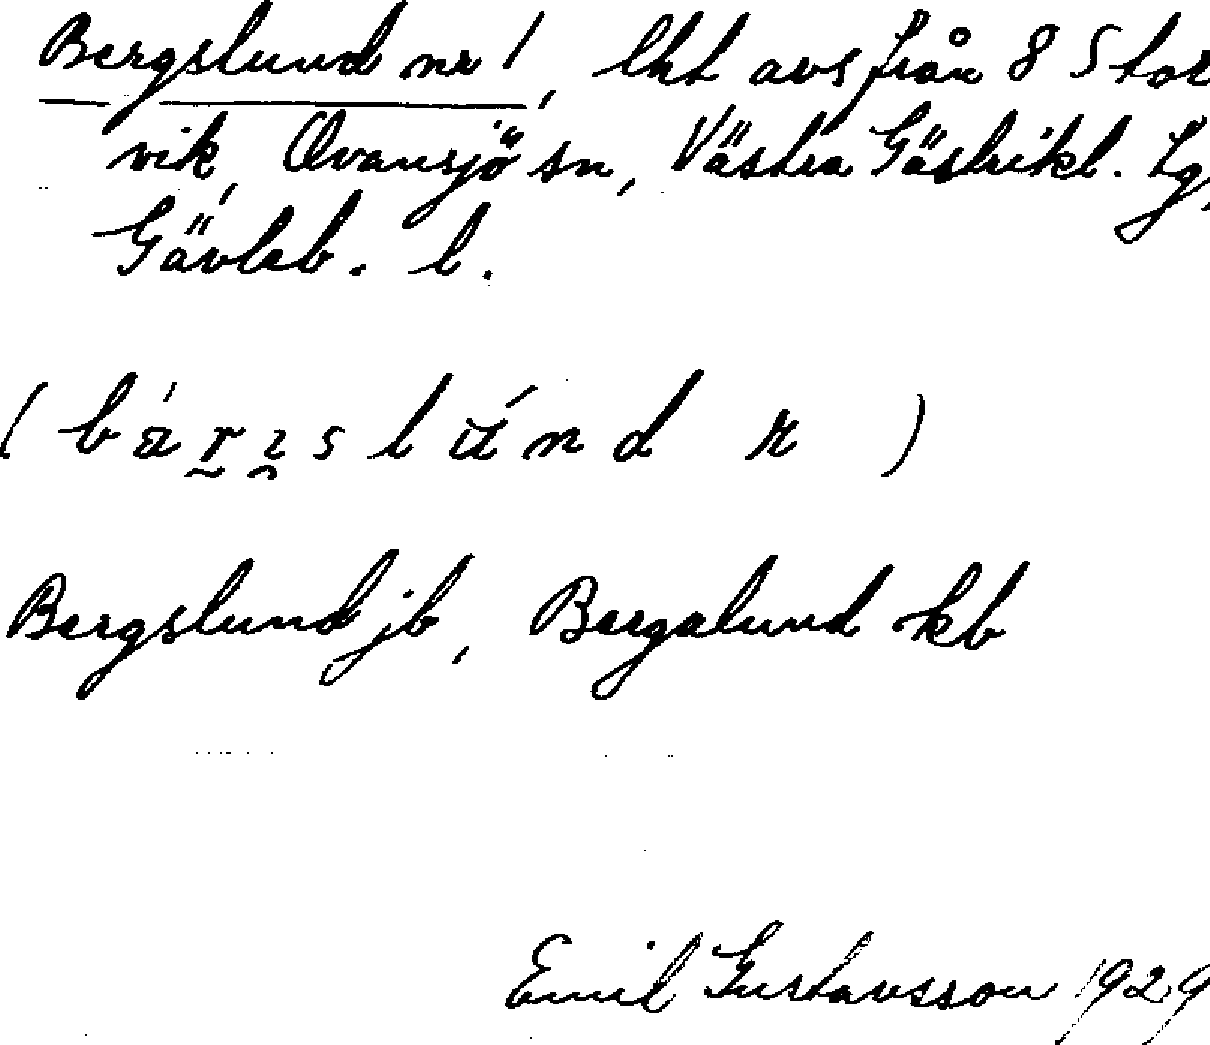 Bergslund nr 1, lht avs från 8 Stor
vik, Ovansjö sn, Västra Gästrikl. Lg,
Gävleb. l.
Bergslund jb, Bergslund kb
Emil Gustavsson 1929